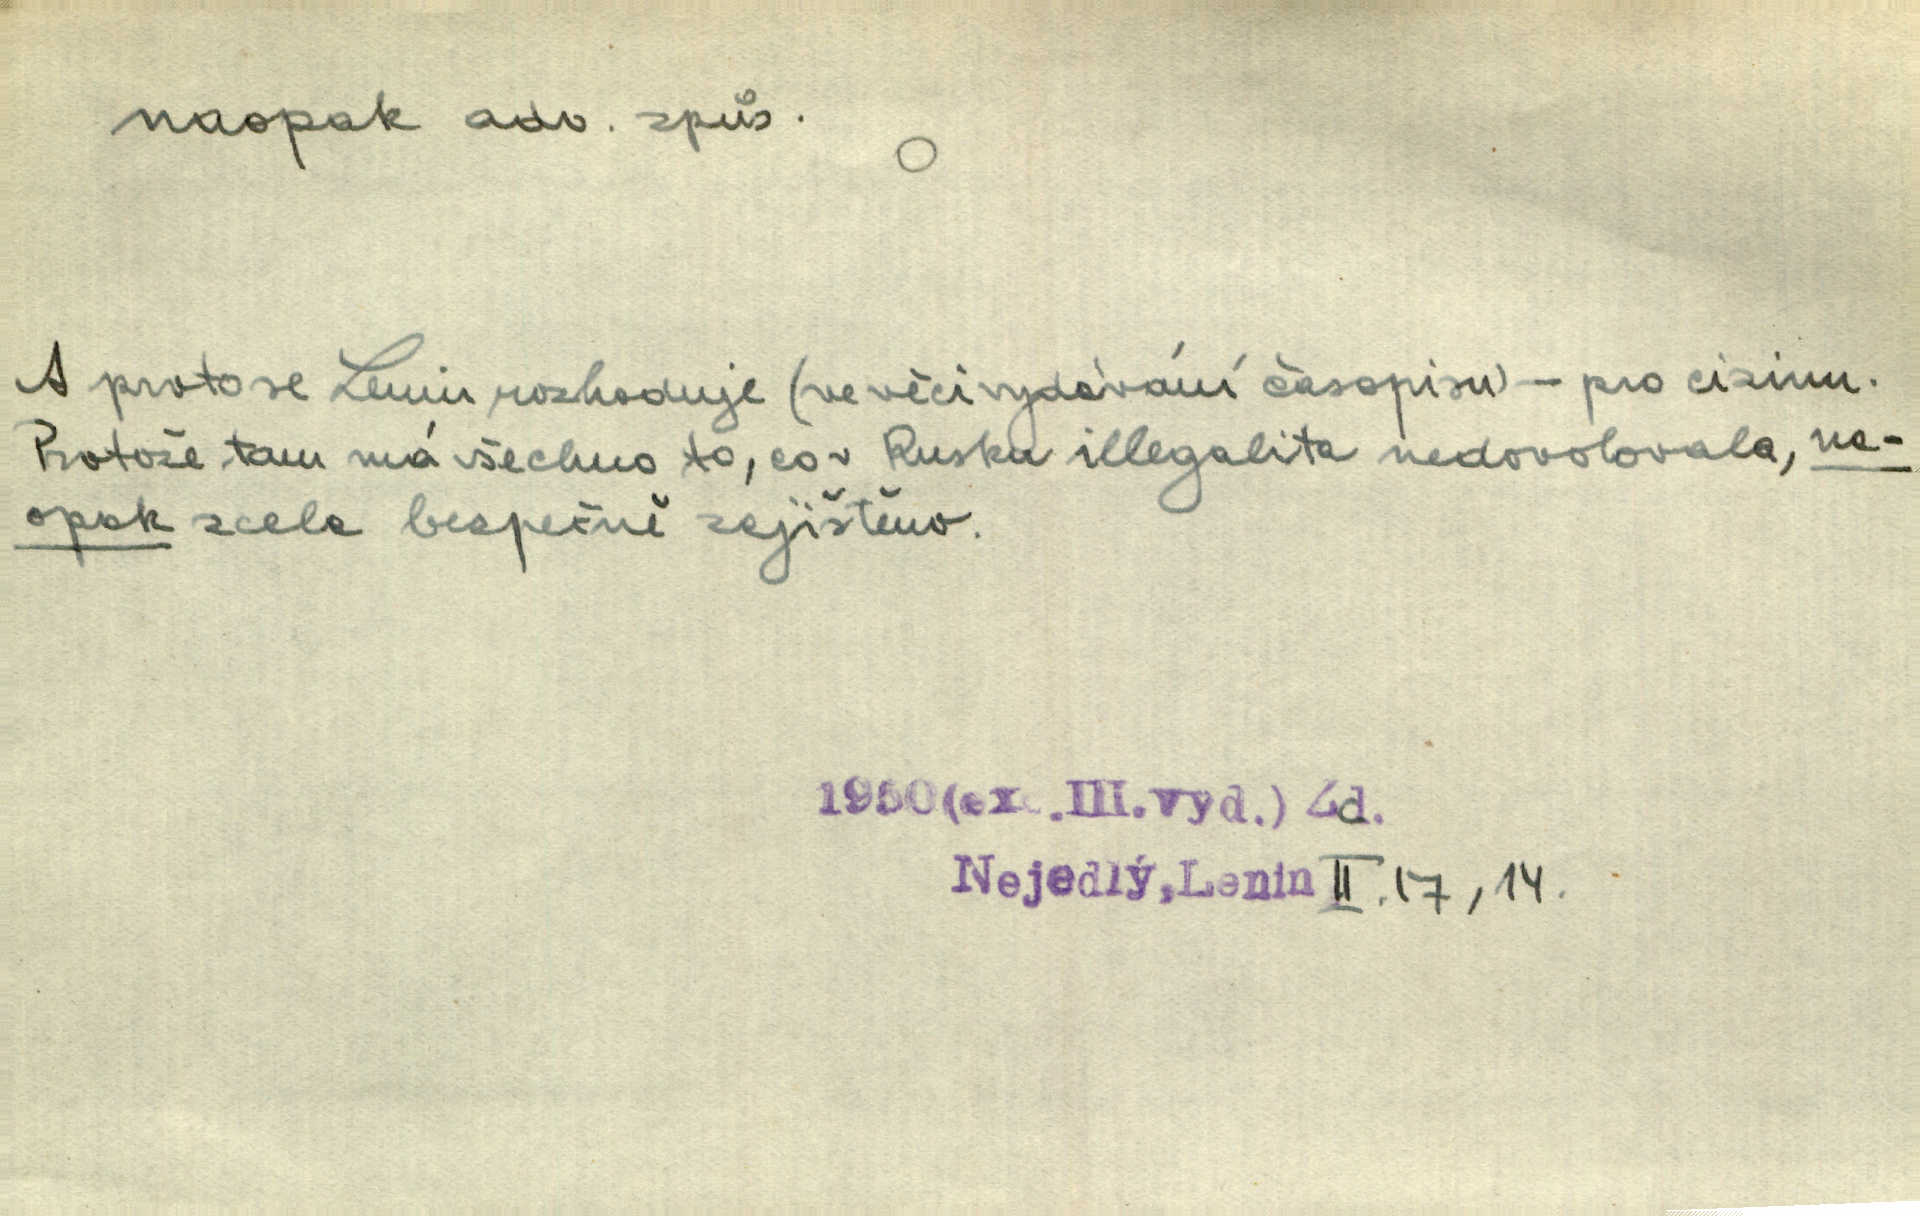 naopak adv. způs.
A proto se Lenin rozhoduje (ve věci vydávání časopisu) – pro cizinu.
Protože tam má všechno to, co v Rusku illegalita nedovolovala, na-
opak zcela bezpečně zajištěno.
1950(exc.III.vyd.) Zd.
Nejedlý,Lenin II.17,14.